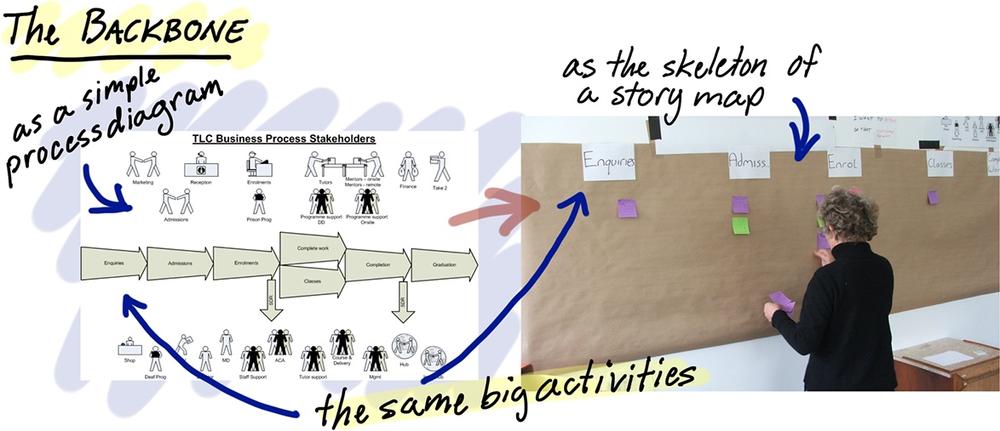 The BACKBONE
as a simple
process diagram
as the skeleton of
a story map
TLC Business Process Stakeholders
Marketing
Reception
Enrolments
Tutors
Mentors - onsite
Mentors - remote
Finance
Take 2
Admissions
Prison Prog
Programme support
DD
Programme support
Onsite
Enquiries
Admissions
Enrolments
Complete work
Classes
Completion
Graduation
SDR
SDR
Shop
Deaf Prog
MD
Staff Support
ACA
Tutor support
Course &
Delivery
Mgmt
Hub
Enquiries
Admiss.
Enrol
Classes
the same big activities